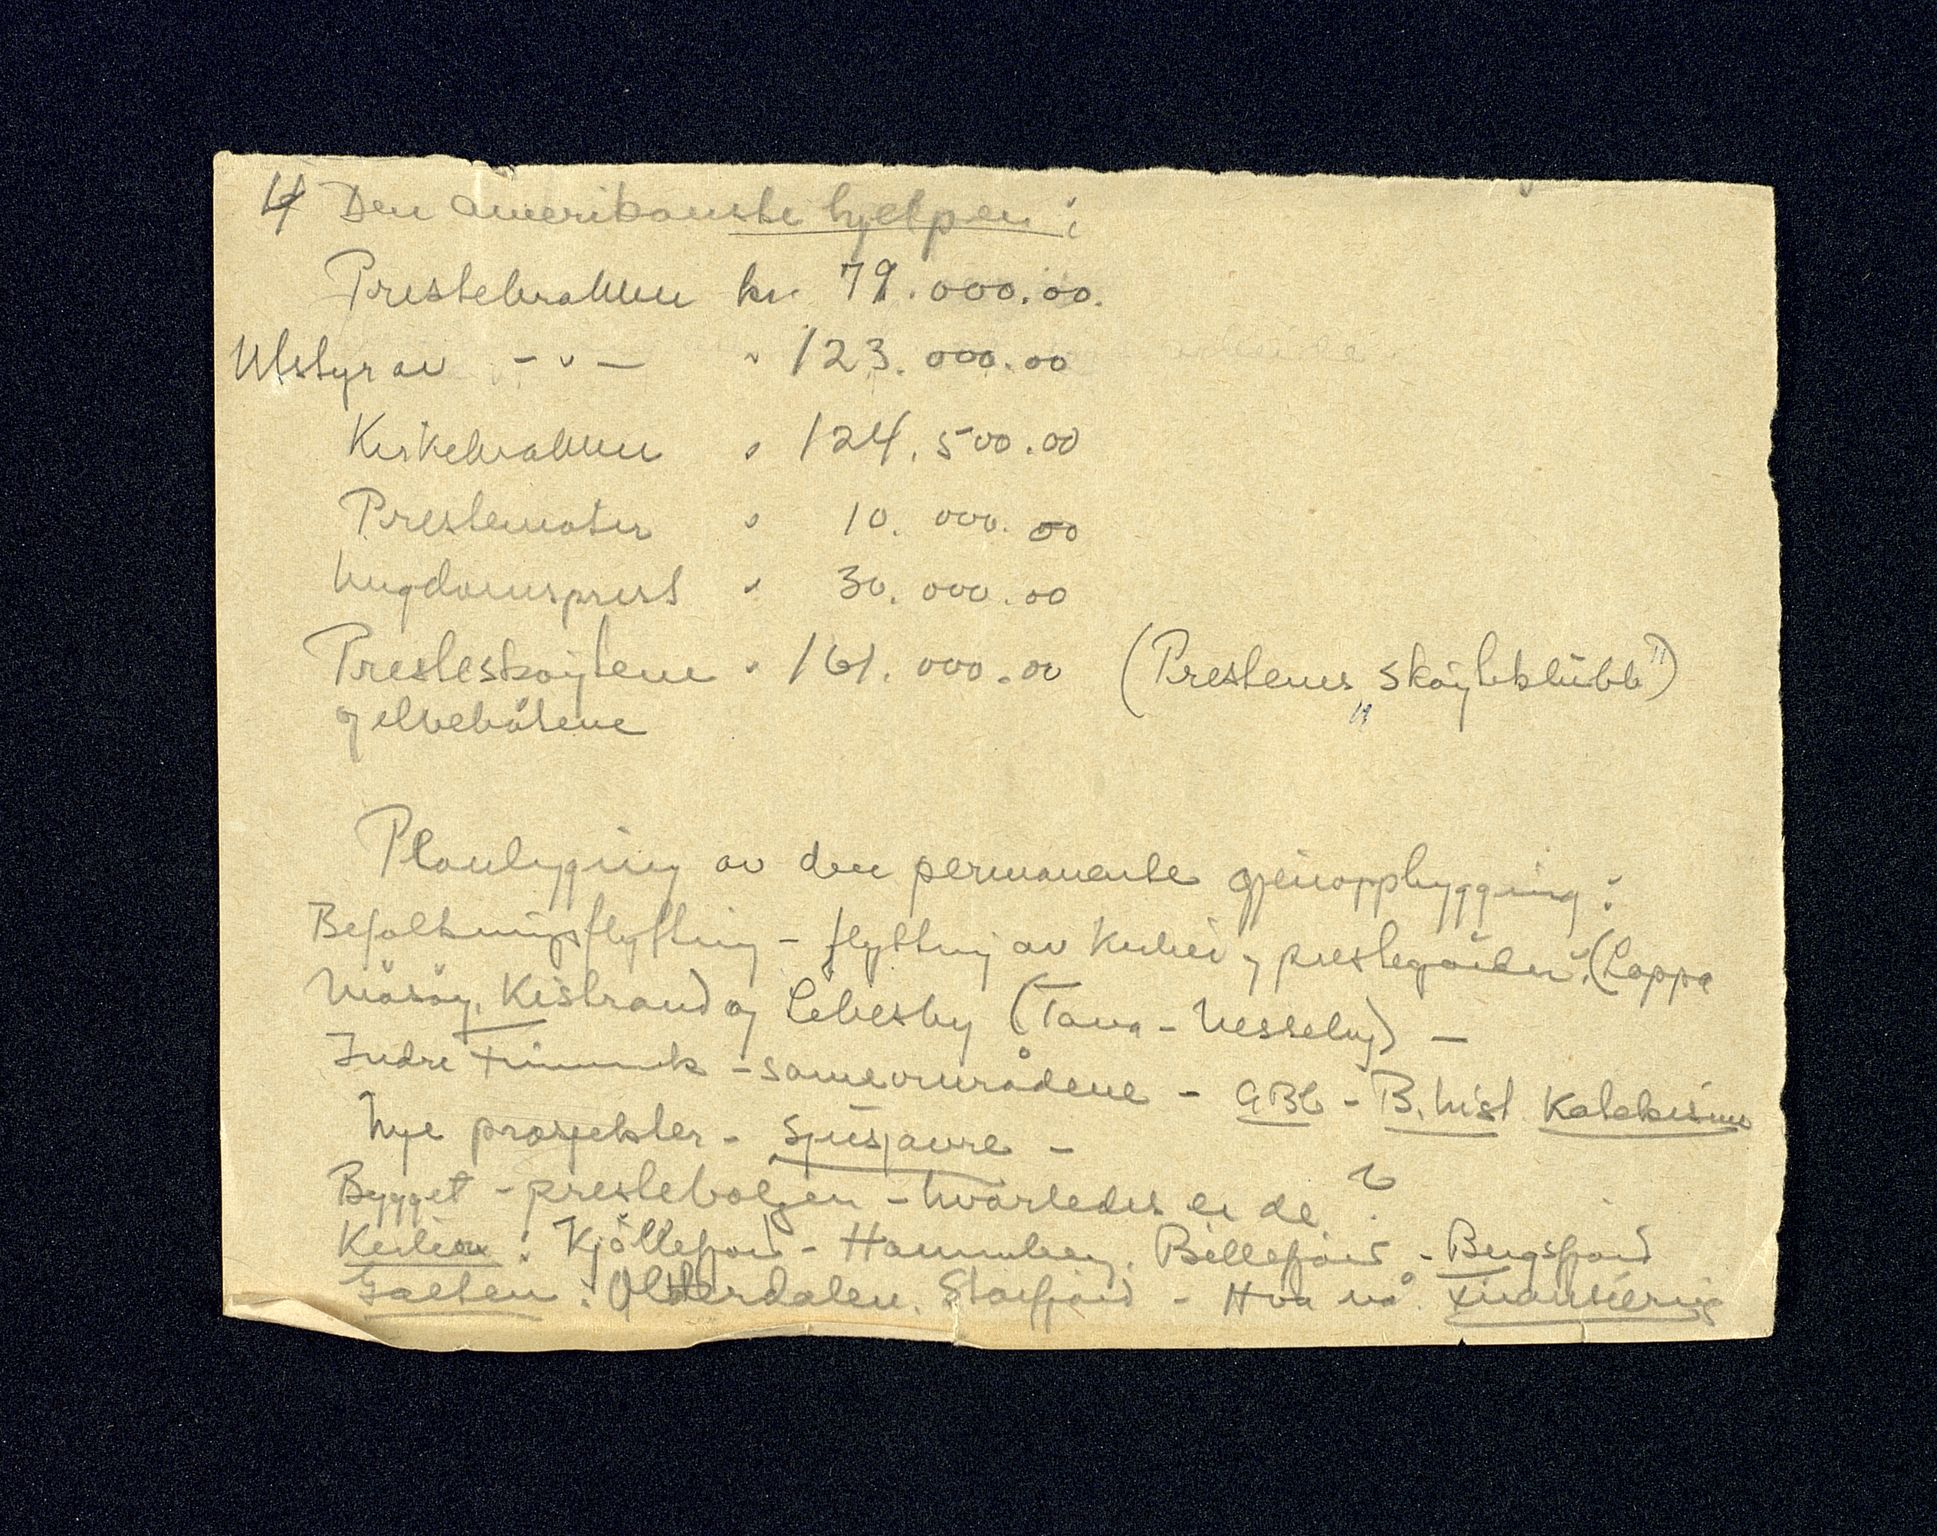 4 Den amerikanske hjelpen :
Prestebrakker kr. 79.000.00.
Utstyr av - " - " 123.000.00
Kirkebrakker " 124.500.00
Prestemøter " 10.000.00
Ungdomsprest " 30.000.00
Presteskøytene " 161.000.00 (Prestenes „skøyteklubb")
og elvebåtene
Planlegging av den permanente gjenoppbygging :
Befolkningsflytting - flytting av kirker og prestegårder. (Loppa
Måsøy, Kistrand og Lebesby (Tana - Nesseby) -
Indre Finnmark - sameområdene - ABC - B.hist Katekisme
Nye prosjekter - Sjusjavre -
Bygget - presteboliger - hvorledes er de ?
Kirker : Kjøllefjord - Hammerberg, Billefjord - Bugøfjord
Olderdalen, Storfjord - Hva nå. Finansiering